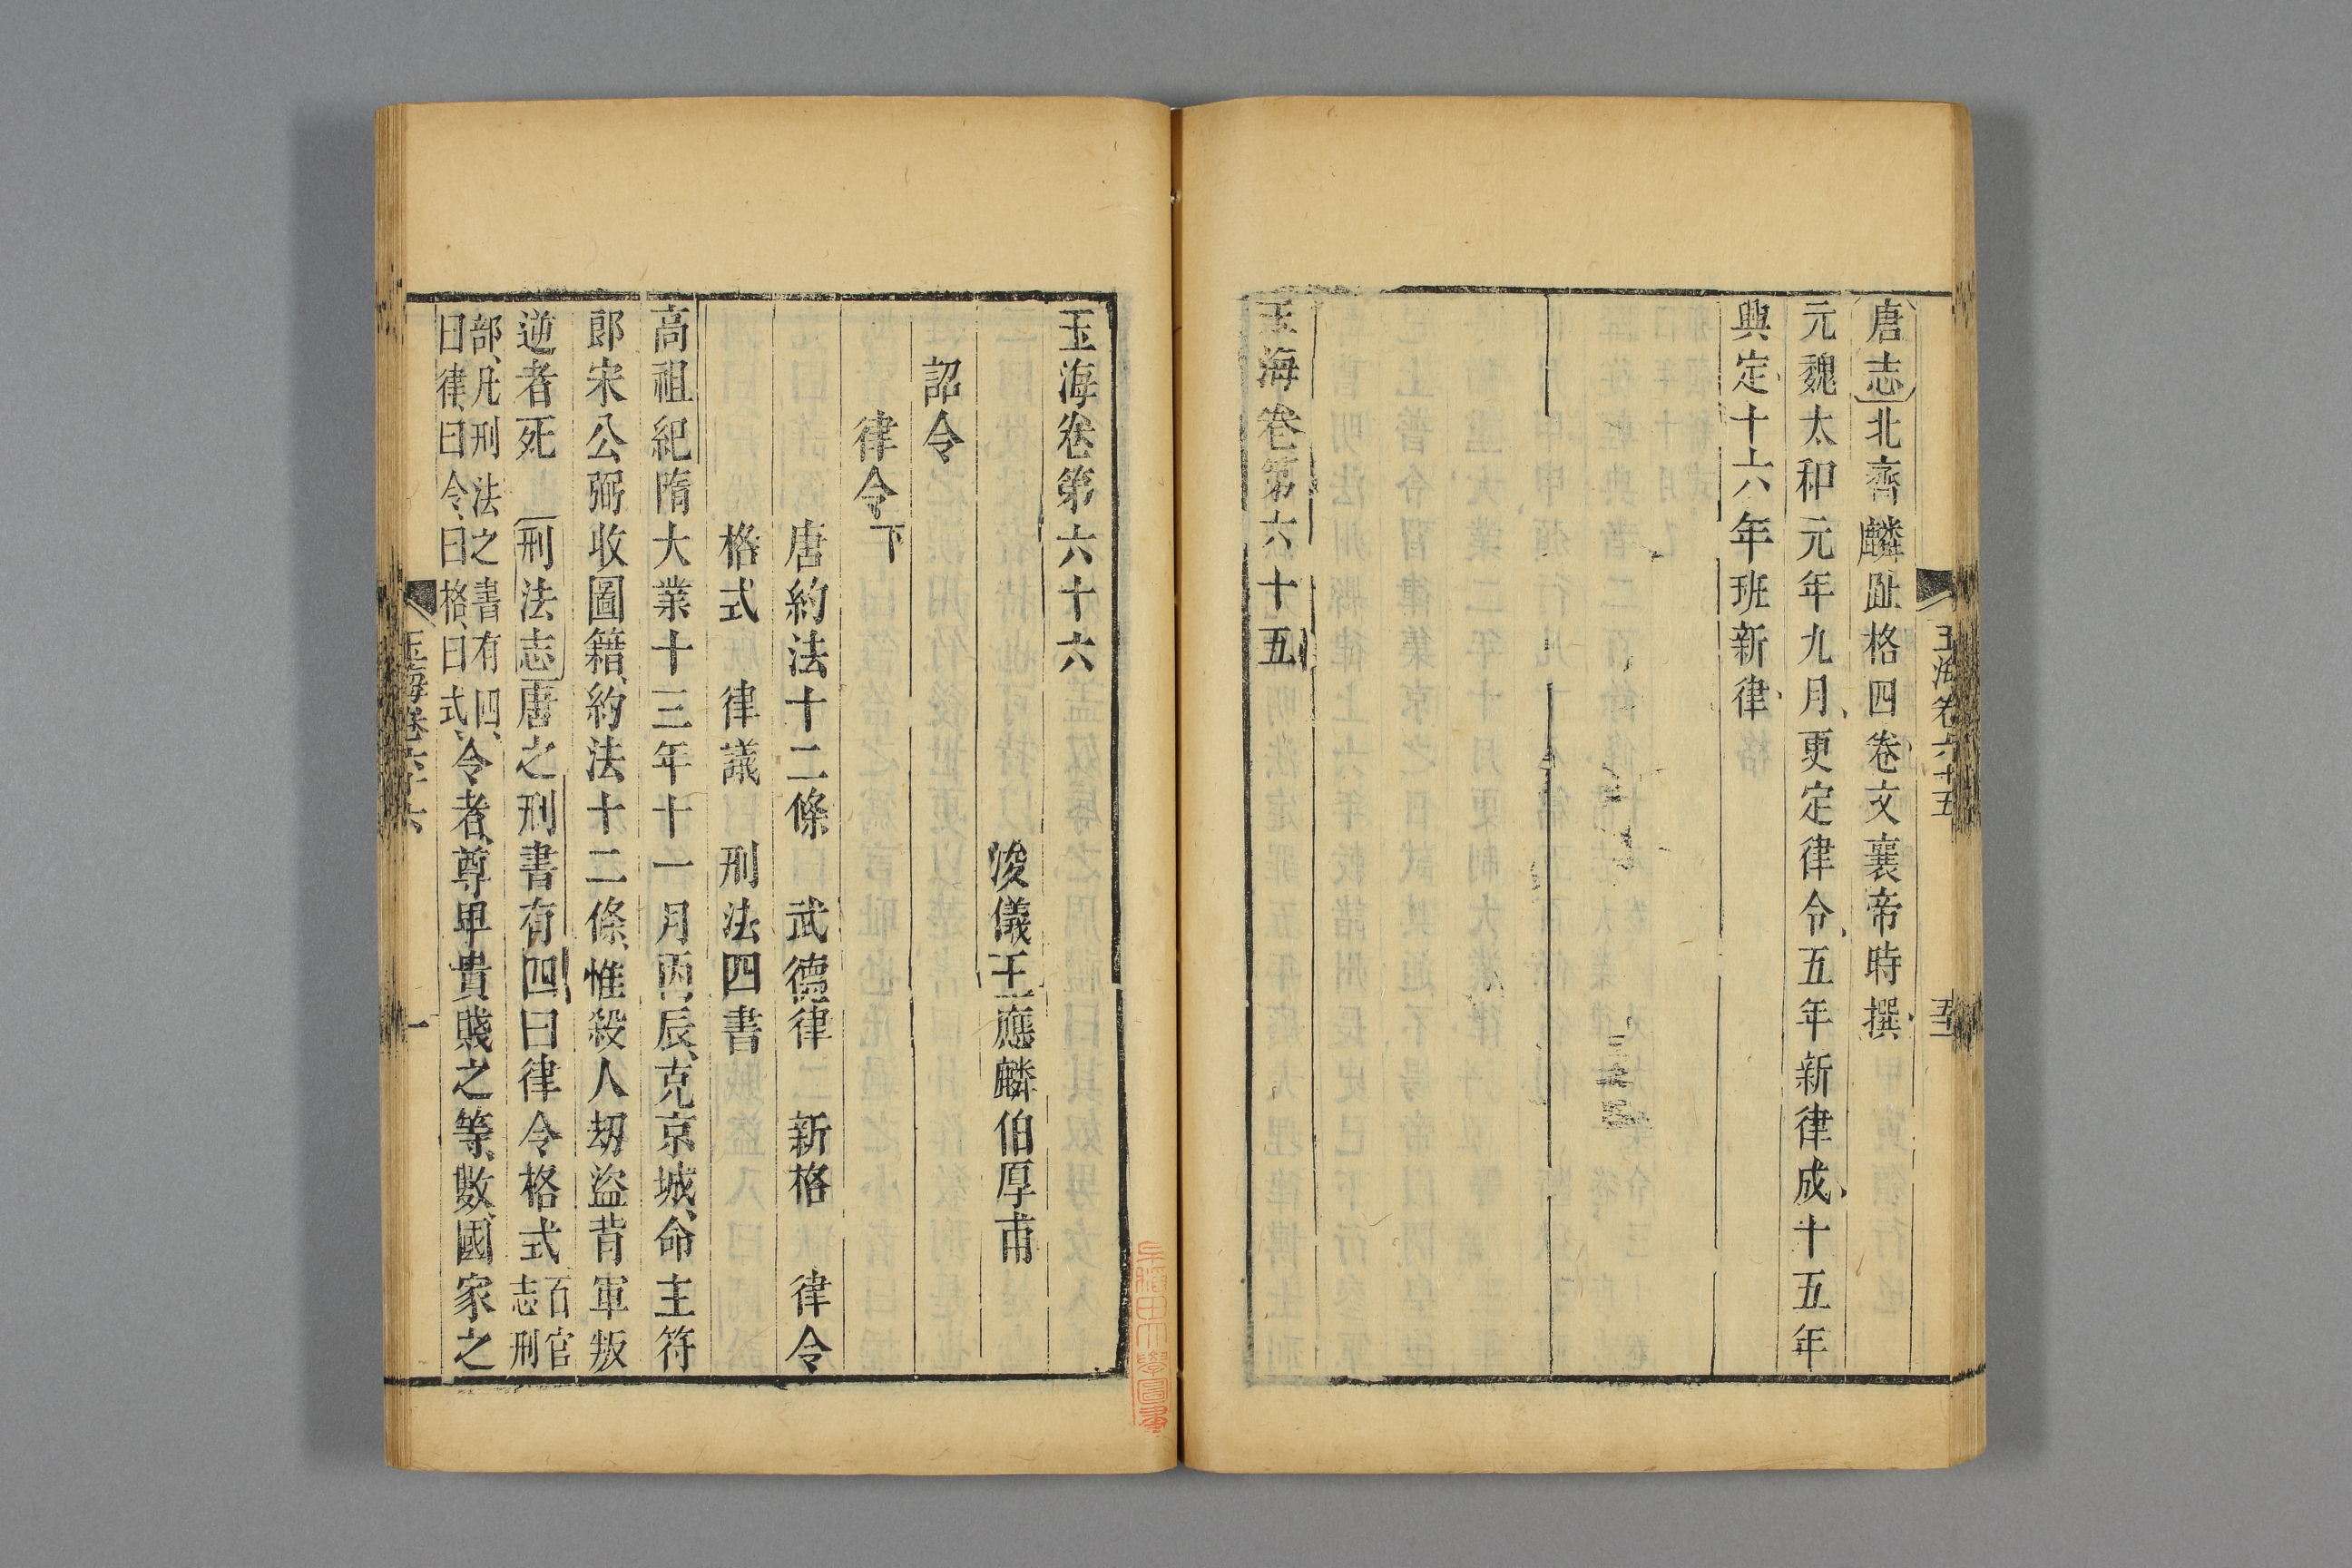 唐志北齊麟趾格四卷文襄帝時撰
元魏太和元年九月更定律令五年新律成十五年
興定十六年班新律
玉海卷第六十五
玉海卷六十五
玉海卷第六十六
浚儀王應麟伯厚甫
詔令
律令下
唐約法十二條 武德律 新格 律令
格式 律議 刑法四書
高祖紀隋大業十三年十一月丙辰克京城命主符
郎宋公弼收圖籍約法十二條惟殺人刼盜背軍叛
逆者死 刑法志唐之刑書有四曰律令格式百官志刑
部凡刑法之書有四曰律曰令曰格曰式令者尊卑貴賤之等數國家之
玉海卷六十六 一